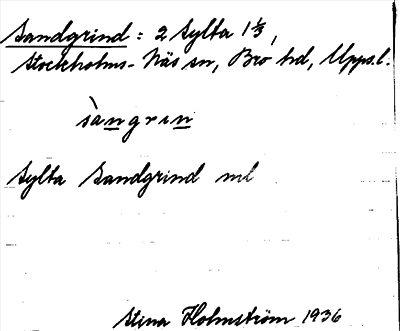 Sandgrind : 2 Sylta 1 1/3,
Stockholms-Näs sn, Bro hd, Upps.l.
sàngrin
Sylta Sandgrind ml
Stina Holmström 1936